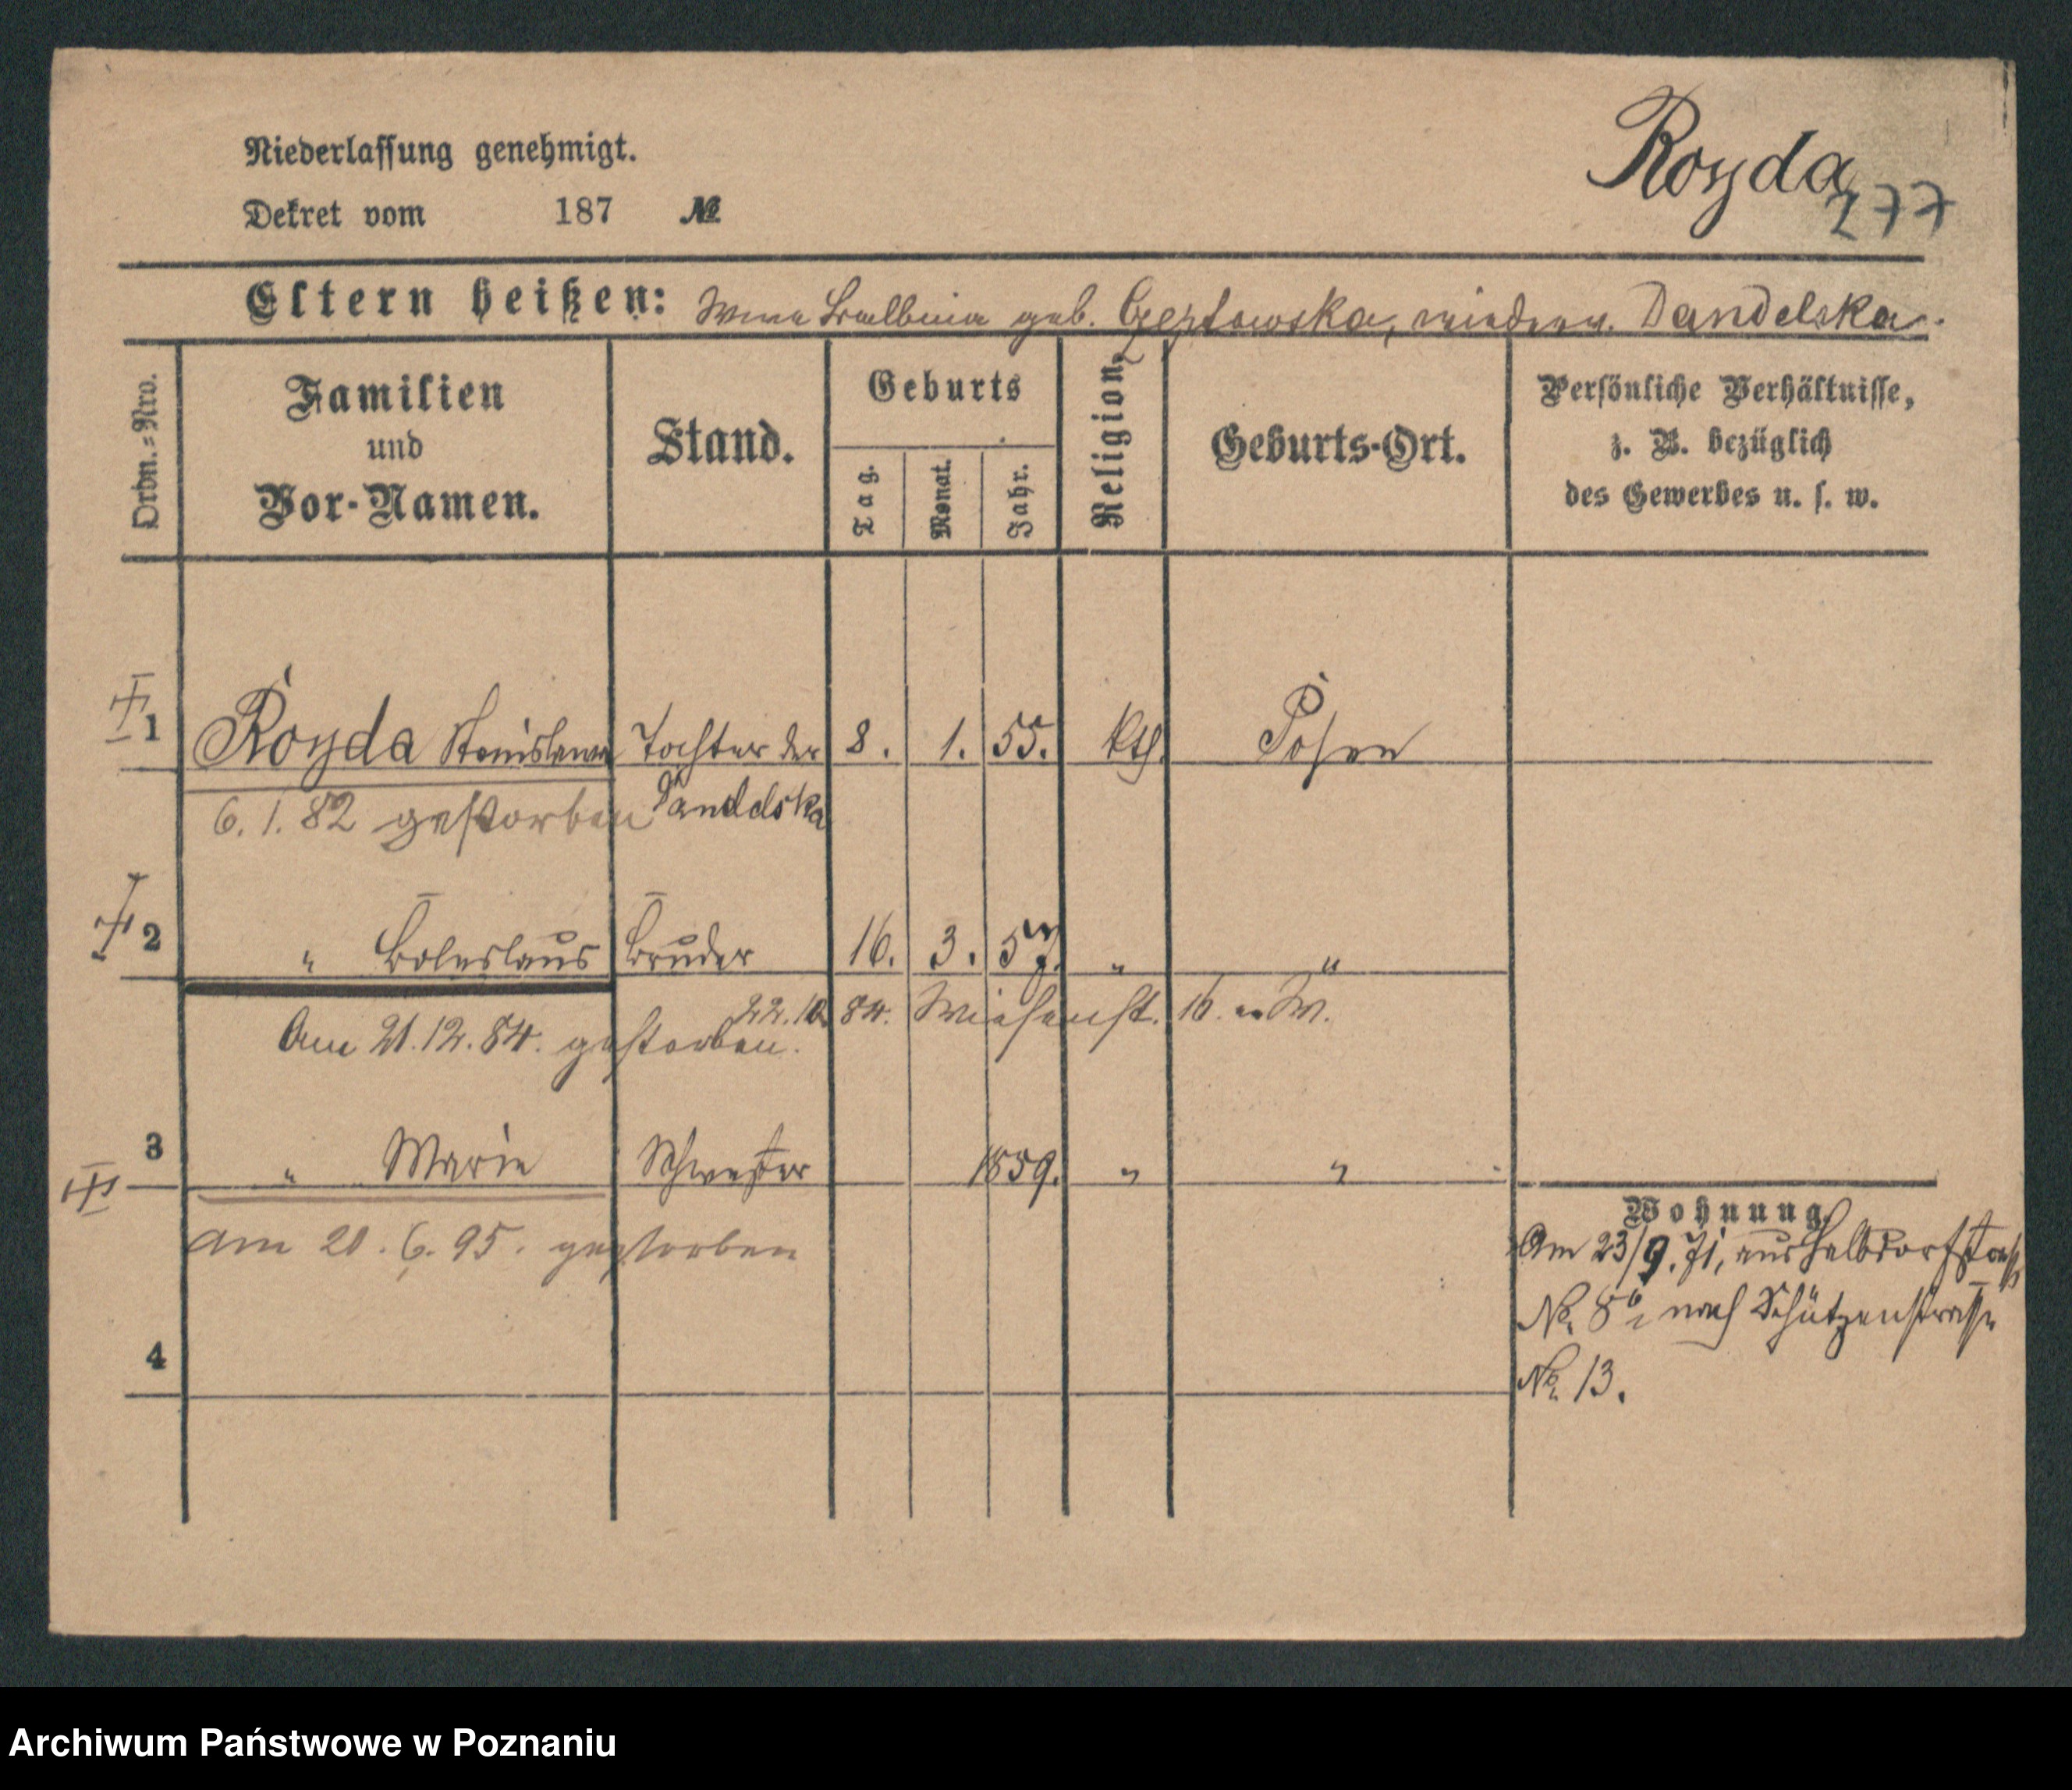 Niederlassung genehmigt.
Royda
277
Dekret vom 187 №
Eltern heißen: Wwe Balbina geb. Czeptowska, wiederv. Dandelska.
Ordn.-Nro.
Familien und Vor-Namen.
Stand.
Geburts
Tag.
Monat.
Jahr.
Religion.
Geburts-Ort.
Persönliche Verhältnisse,
z. B. bezüglich
des Gewerbes u. s. w.
1 Royda Stanislawa Tochter der 8. 1. 55. kth. Posen
6.1.82 gestorben Dandelska
2 " Boleslaus Bruder 16. 3. 57. " "
22.10.84. Wiesenst. 16. W.
Am 21.12.84. gestorben.
3 " Marie Schwester 1859. " "
am 20.6.95. gestorben
Wohnung.
Am 23/9.71, aus Halbdorfstraß
No. 8 nach Schützenstrasse
No. 13.
4
Archiwum Państwowe w Poznaniu